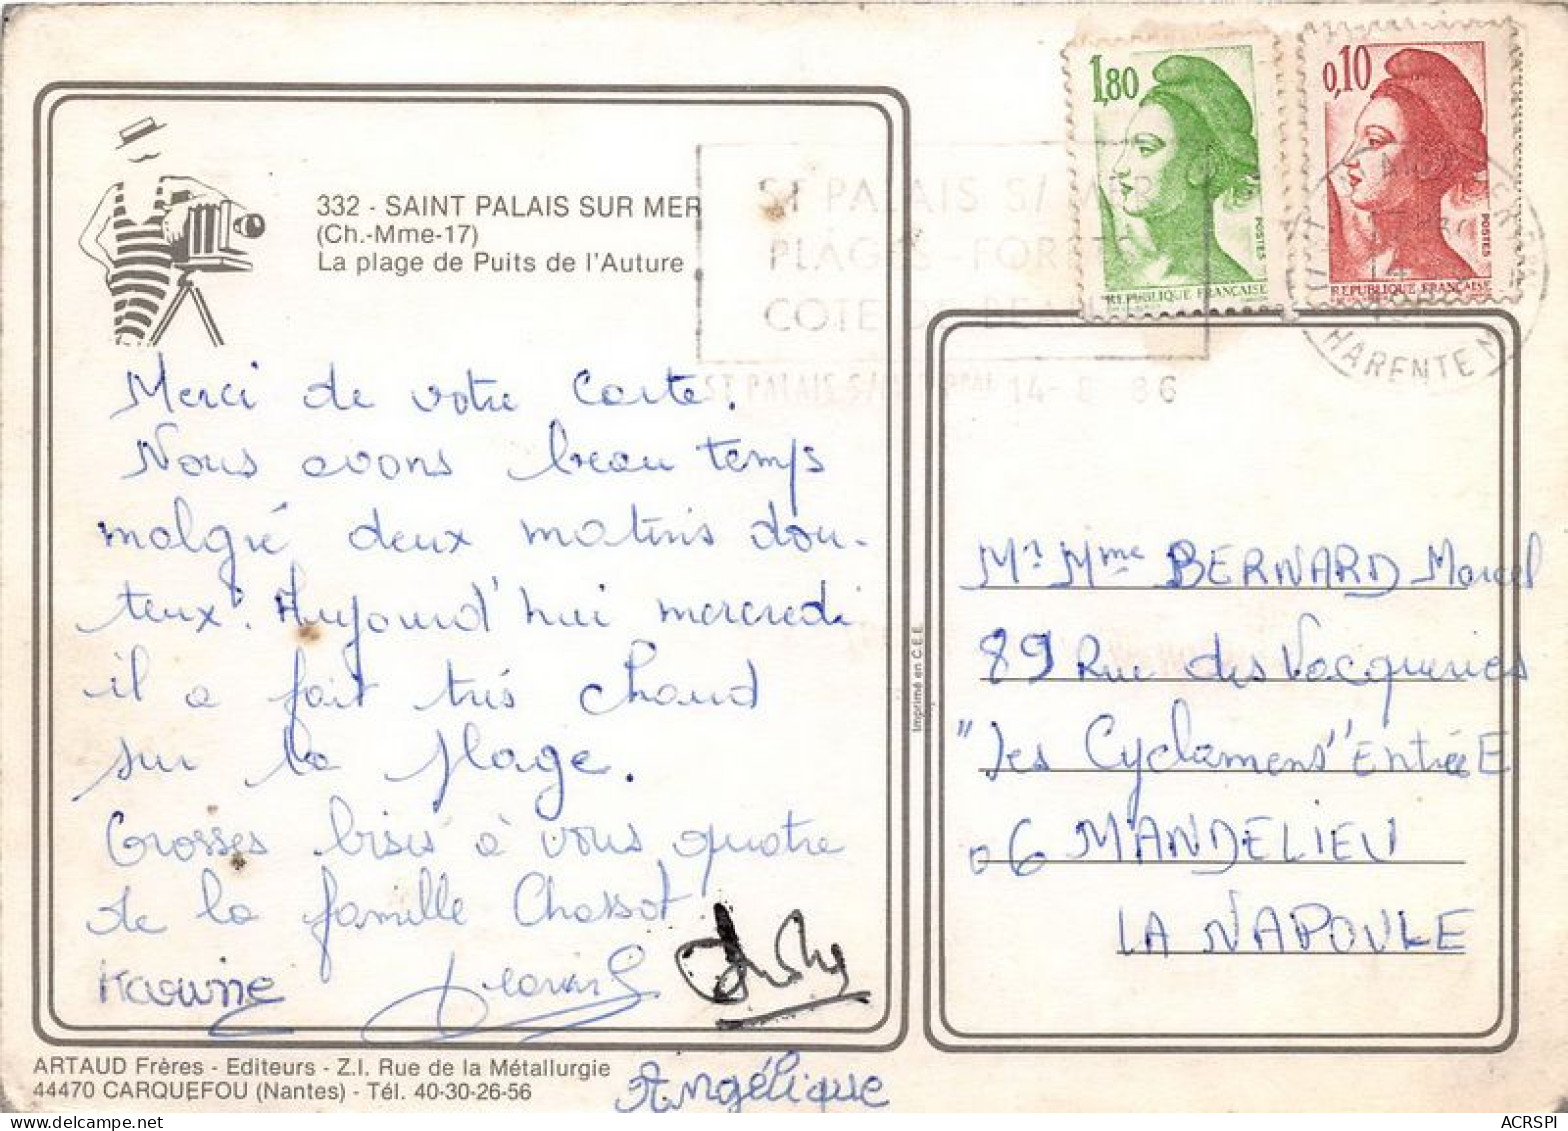 1,80
0,10
POSTES
POSTES
REPUBLIQUE FRANÇAISE
REPUBLIQUE FRANÇAISE
332 - SAINT PALAIS SUR MER
(Ch.-Mme-17)
La plage de Puits de l'Auture
ST PALAIS S/ MER
PLAGES - FORETS
COTE DE BEAUTE
ST PALAIS S/ MER 14-8 86
CHARENTE M
Merci de votre carte.
Nous avons beau temps
malgré deux matins dou-
teux. Aujourd'hui mercredi
il a fait très chaud
sur la plage.
Grosses bises à vous quatre
de la famille Chassot
Karine
Angélique
Mr Mme BERNARD Marcel
89 Rue des Vacqueries
"les Cyclamens" Entrée E
06 MANDELIEU
LA NAPOULE
Imprimé en C.E.E.
ARTAUD Frères - Editeurs - Z.I. Rue de la Métallurgie
44470 CARQUEFOU (Nantes) - Tél. 40-30-26-56
delcampe.net
ACRSPI